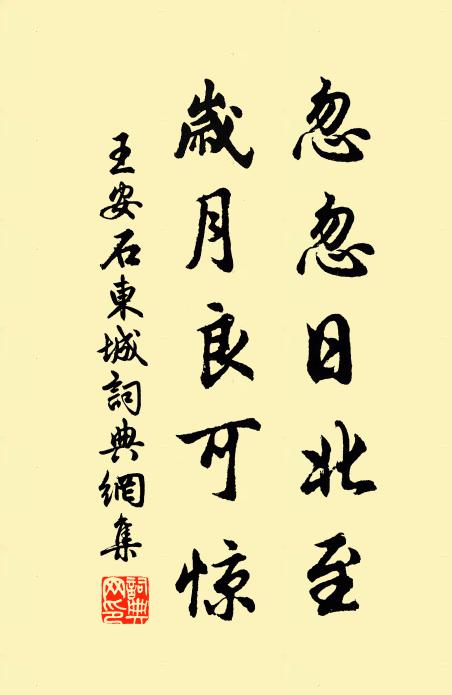 忽忽日北至
歲月良可惊
王安石東城詞典網集
詞典网印